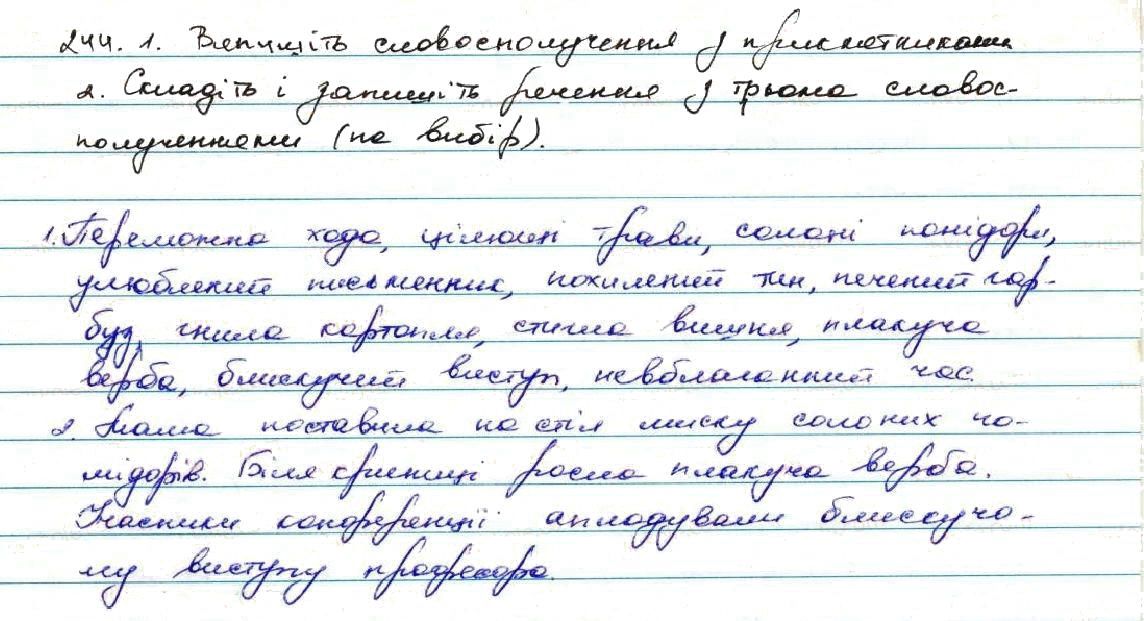 244. 1. Випишіть словосполучення з прикметниками
2. Складіть і запишіть речення з трьома словос-
полученнями (на вибір).
1. Переможна хода, цілющі трави, солоні помідори,
улюблений письменник, похилений тин, печений гар-
буз, гнила картопля, стигла вишня, плакуча
верба, блискучий виступ, невблаганний час.
2. Мама поставила на стіл миску солоних по-
мідорів. Біля криниці росла плакуча верба.
Учасники конференції аплодували блискучо-
му виступу професора.